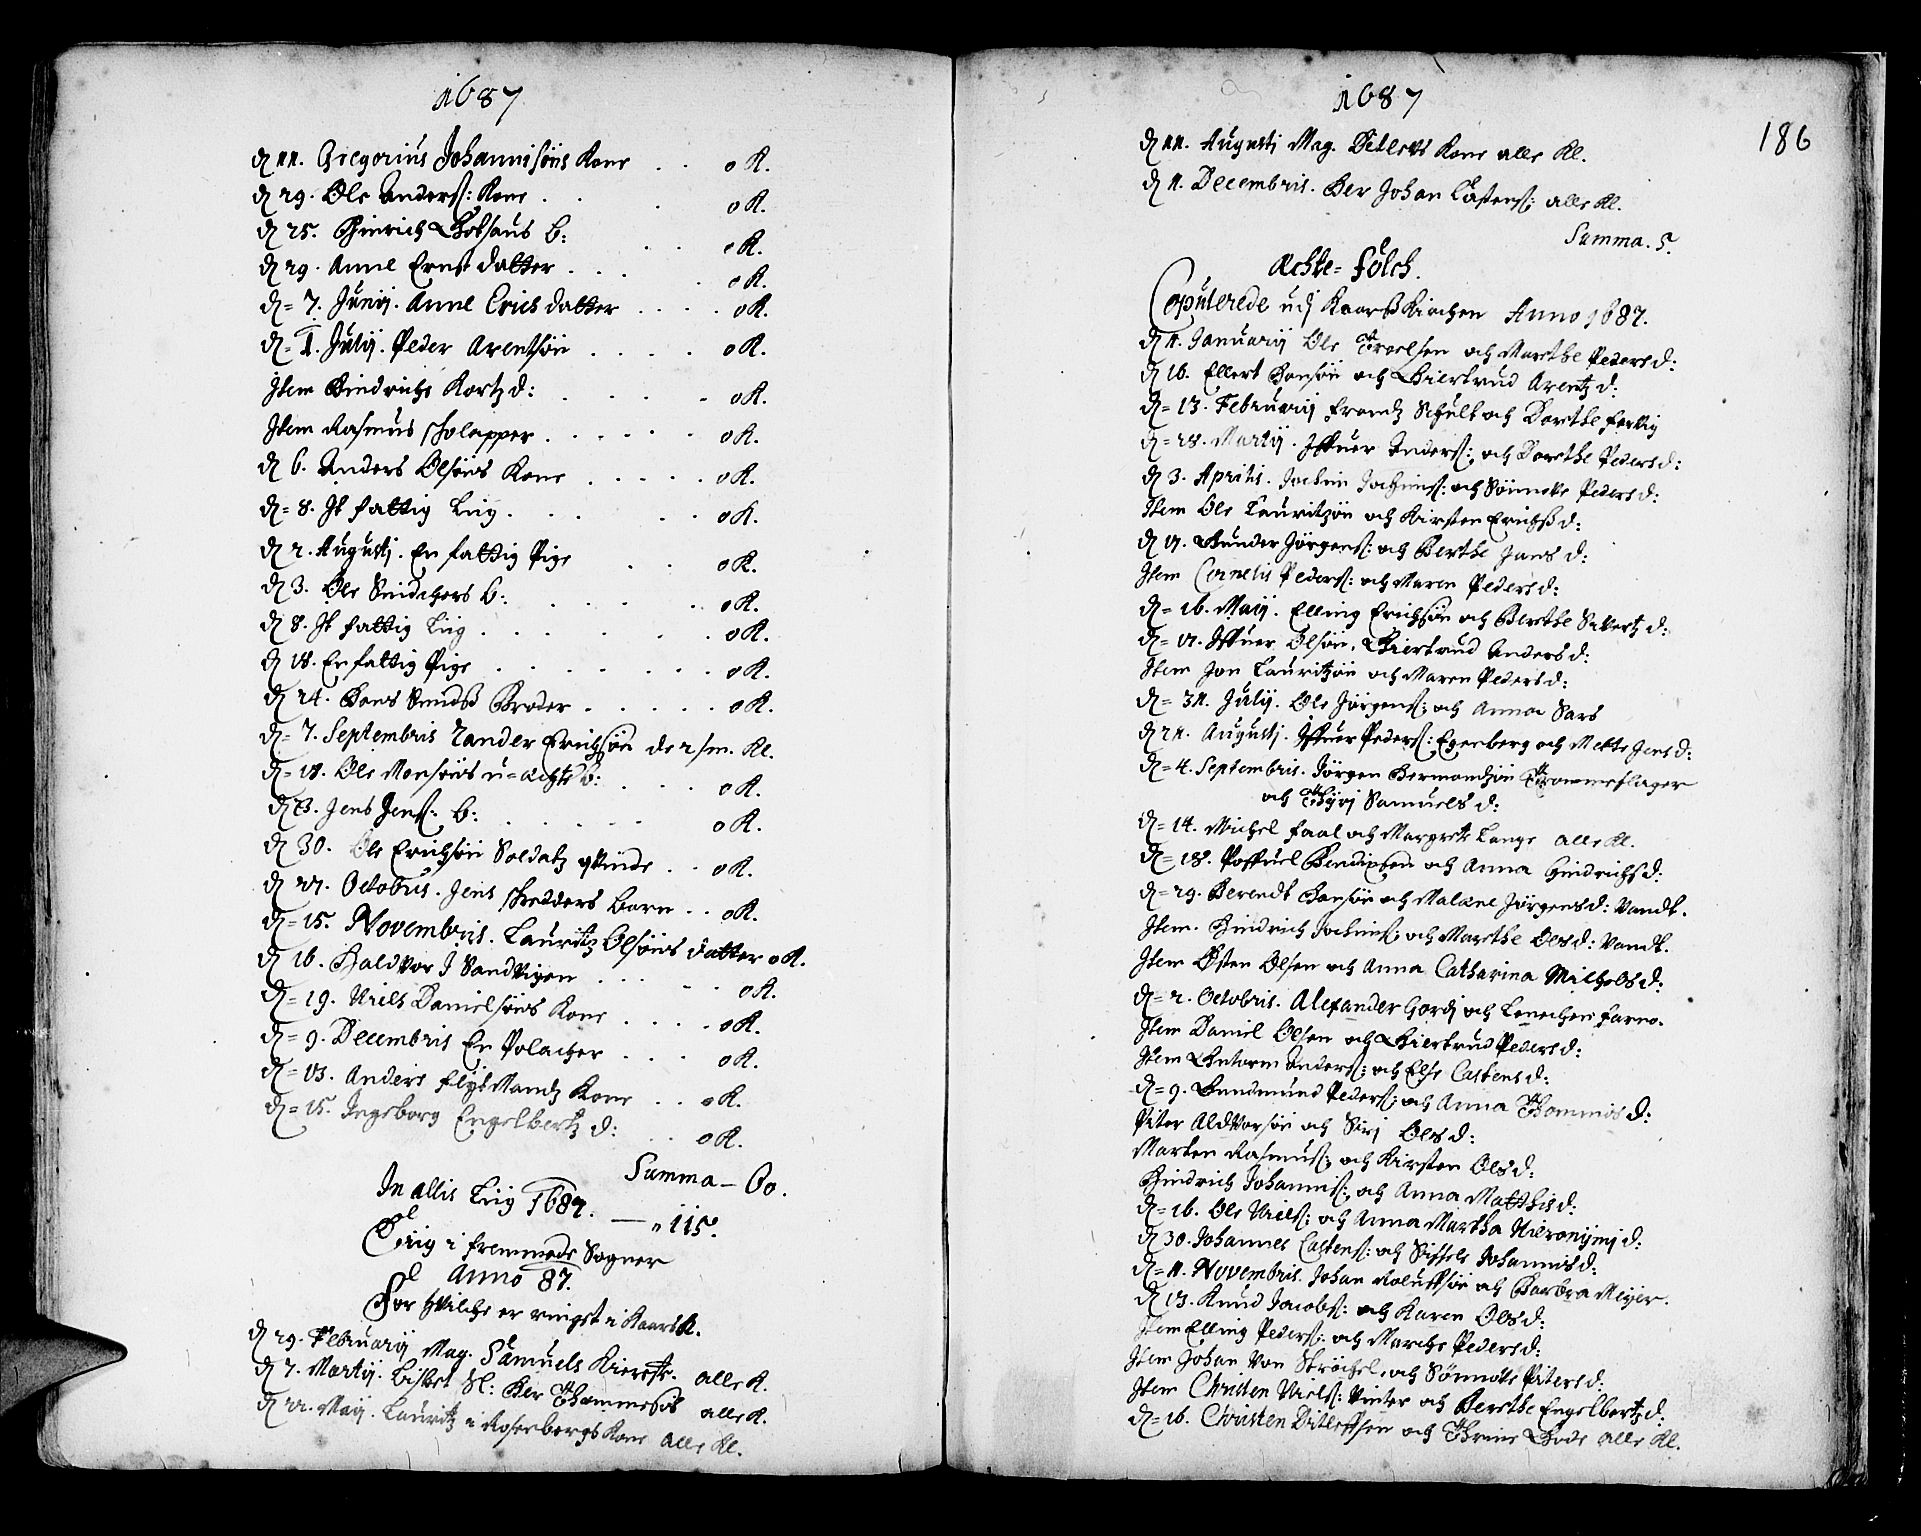 1687
d 22. Gregorius Johannisöns Kone . . o K.
d 29. Ole Anderss: Kone . . . o K.
d 25. Hinrich b: . . o K.
d 29. Anne Ernst datter . . . . o K.
d= 7. Junij. Anne Erichsdatter . . . . o K.
d= 1. Julij. Peder Arentsön . . . . o K.
Item Hindriche Kortz d: . . . . . o K.
Item Rasmus . . . . . . o K.
d 6. Anders Olsöns Kone . . . . . o K.
d= 8. It fattig Liig . . . . . o K.
d 2. Augustj. En fattig Pige . . o K.
d 3. Ole b: . . . . . o K.
d 8. It fattig Liig . . . . . . o K.
d 18. En fattig Pige . . . . . . o K.
d 24. Hans Smids Broder . . . . . o K.
d= 7. Septembris Zander Erichsön de 2/m. Kl.
d= 18. Ole Monsöns u=ächte b: . . . . o K.
d 23. Jens Jenss: b: . . . . . o K.
d 30. Ole Erichsön Soldatz qvinde . . o K.
d 22. Octobris. Jens Skredders barn . . o K.
d= 15. Novembris. Lauritz Olsöns datter o K.
d 16. Haldvor J Sandvigen . . . . . o K.
d= 19. Niels Danielsöns Kone . . . . o K.
d= 9. Decembris En Polacher . . . o K.
d= 13. Anders Kone . . o K.
d= 15. Ingeborg Engelbertz d: . . o K.
Summa — 60.
In allis Liig 1687. — " 115.
Liig i fremmede Sogner
Anno 87.
For hvilche er ringet i KaarsK.
d 29. Februarij Mag. Samuels alle K.
d 7. Martij. Sl: Her alle K.
d 22. Maij. Lauritz i Rosenbergs Kone alle Kl.
1687
186
d 22. Augusti Mag. Ditlevs Kone alle Kl.
d 11. Decembris. Her Johan Castenss: alle Kl.
Summa. 5.
Achte=folch.
Copulerede udj Kaarss Kirchen Anno 1687.
d 11. Januarij Ole Troelsen och Marethe Pedersd:
d 16. Ellert Hansön och Giertrud Arentz d:
d= 13. Februarij Frantz Schult och Dorethe
d= 28. Martij. Iffuer Anderss: och Dorethe Pedersd:
d 3. Aprilis. Jochim Jochimss: och Sönneve Pedersd:
Item Ole Lauritzön och Kirsten Erichsd:
d 17. Gunder Jörgenss: och Berthe Jans d:
Item Cornelis Pederss: och Maren Pedersd:
d= 16. Maij. Elling Erichsön och Berethe Sivertz d:
d= 17. Iffuer Olsön, Giertrud Anders d:
Item Jon Lauritzön och Maren Pedersd:
d= 31. Julij. Ole Jörgenss: och Anna Lars
d 21. Augustj. Iffuer Pederss: Egenberg och Mette Jens d:
d= 4. Septembris. Jörgen Hermandsön Trommeslager
och Thyri Samuels d:
d= 14. Michel Faal och Margrete Lange alle Kl.
d= 18. Poffuel Bendixsen och Anna Hindrichs d:
d= 29. Berendt Hansön och Malene Jörgensd: Vandt.
Item. Hindrich Jochimss: och Marethe Olsd: Vandt.
Item Östen Olsen och Anna Catharina Michels d:
d= 2. Octobris. Alexander Gordj och Lenechen Farno.
Item Daniel Olsen och Giertrud Pedersd:
Item Gutorm Anderss: och Else Castensd:
d= 9. Gundmund Pederss: och Anna Thommis d:
Piter Aldvorsön och Sirj Olsd:
Marten Rasmuss: och Kirsten Olsd:
Hindrich Johannis: och Anna Matthisd:
d= 16. Ole Nielss: och Anna Martha Hieronijmj d:
d 30. Johannes Castenss: och Sissele Johannisd:
d= 11. Novembris. Johan Roluffsön och Barbra Meijer.
d 13. Knud Jacobss: och Karen Olsd:
Item Elling Pederss: och Marethe Pedersd:
Item Johan Von Ströchel, och Sönnove Pitersd:
Item Christen Nielss: Vinter och Berethe Engelbertz d:
d= 16. Christen Ditleffsen och Thrine Gude alle Kl.